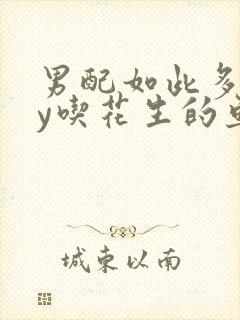 男配如此多
y喫花生的
城东以南